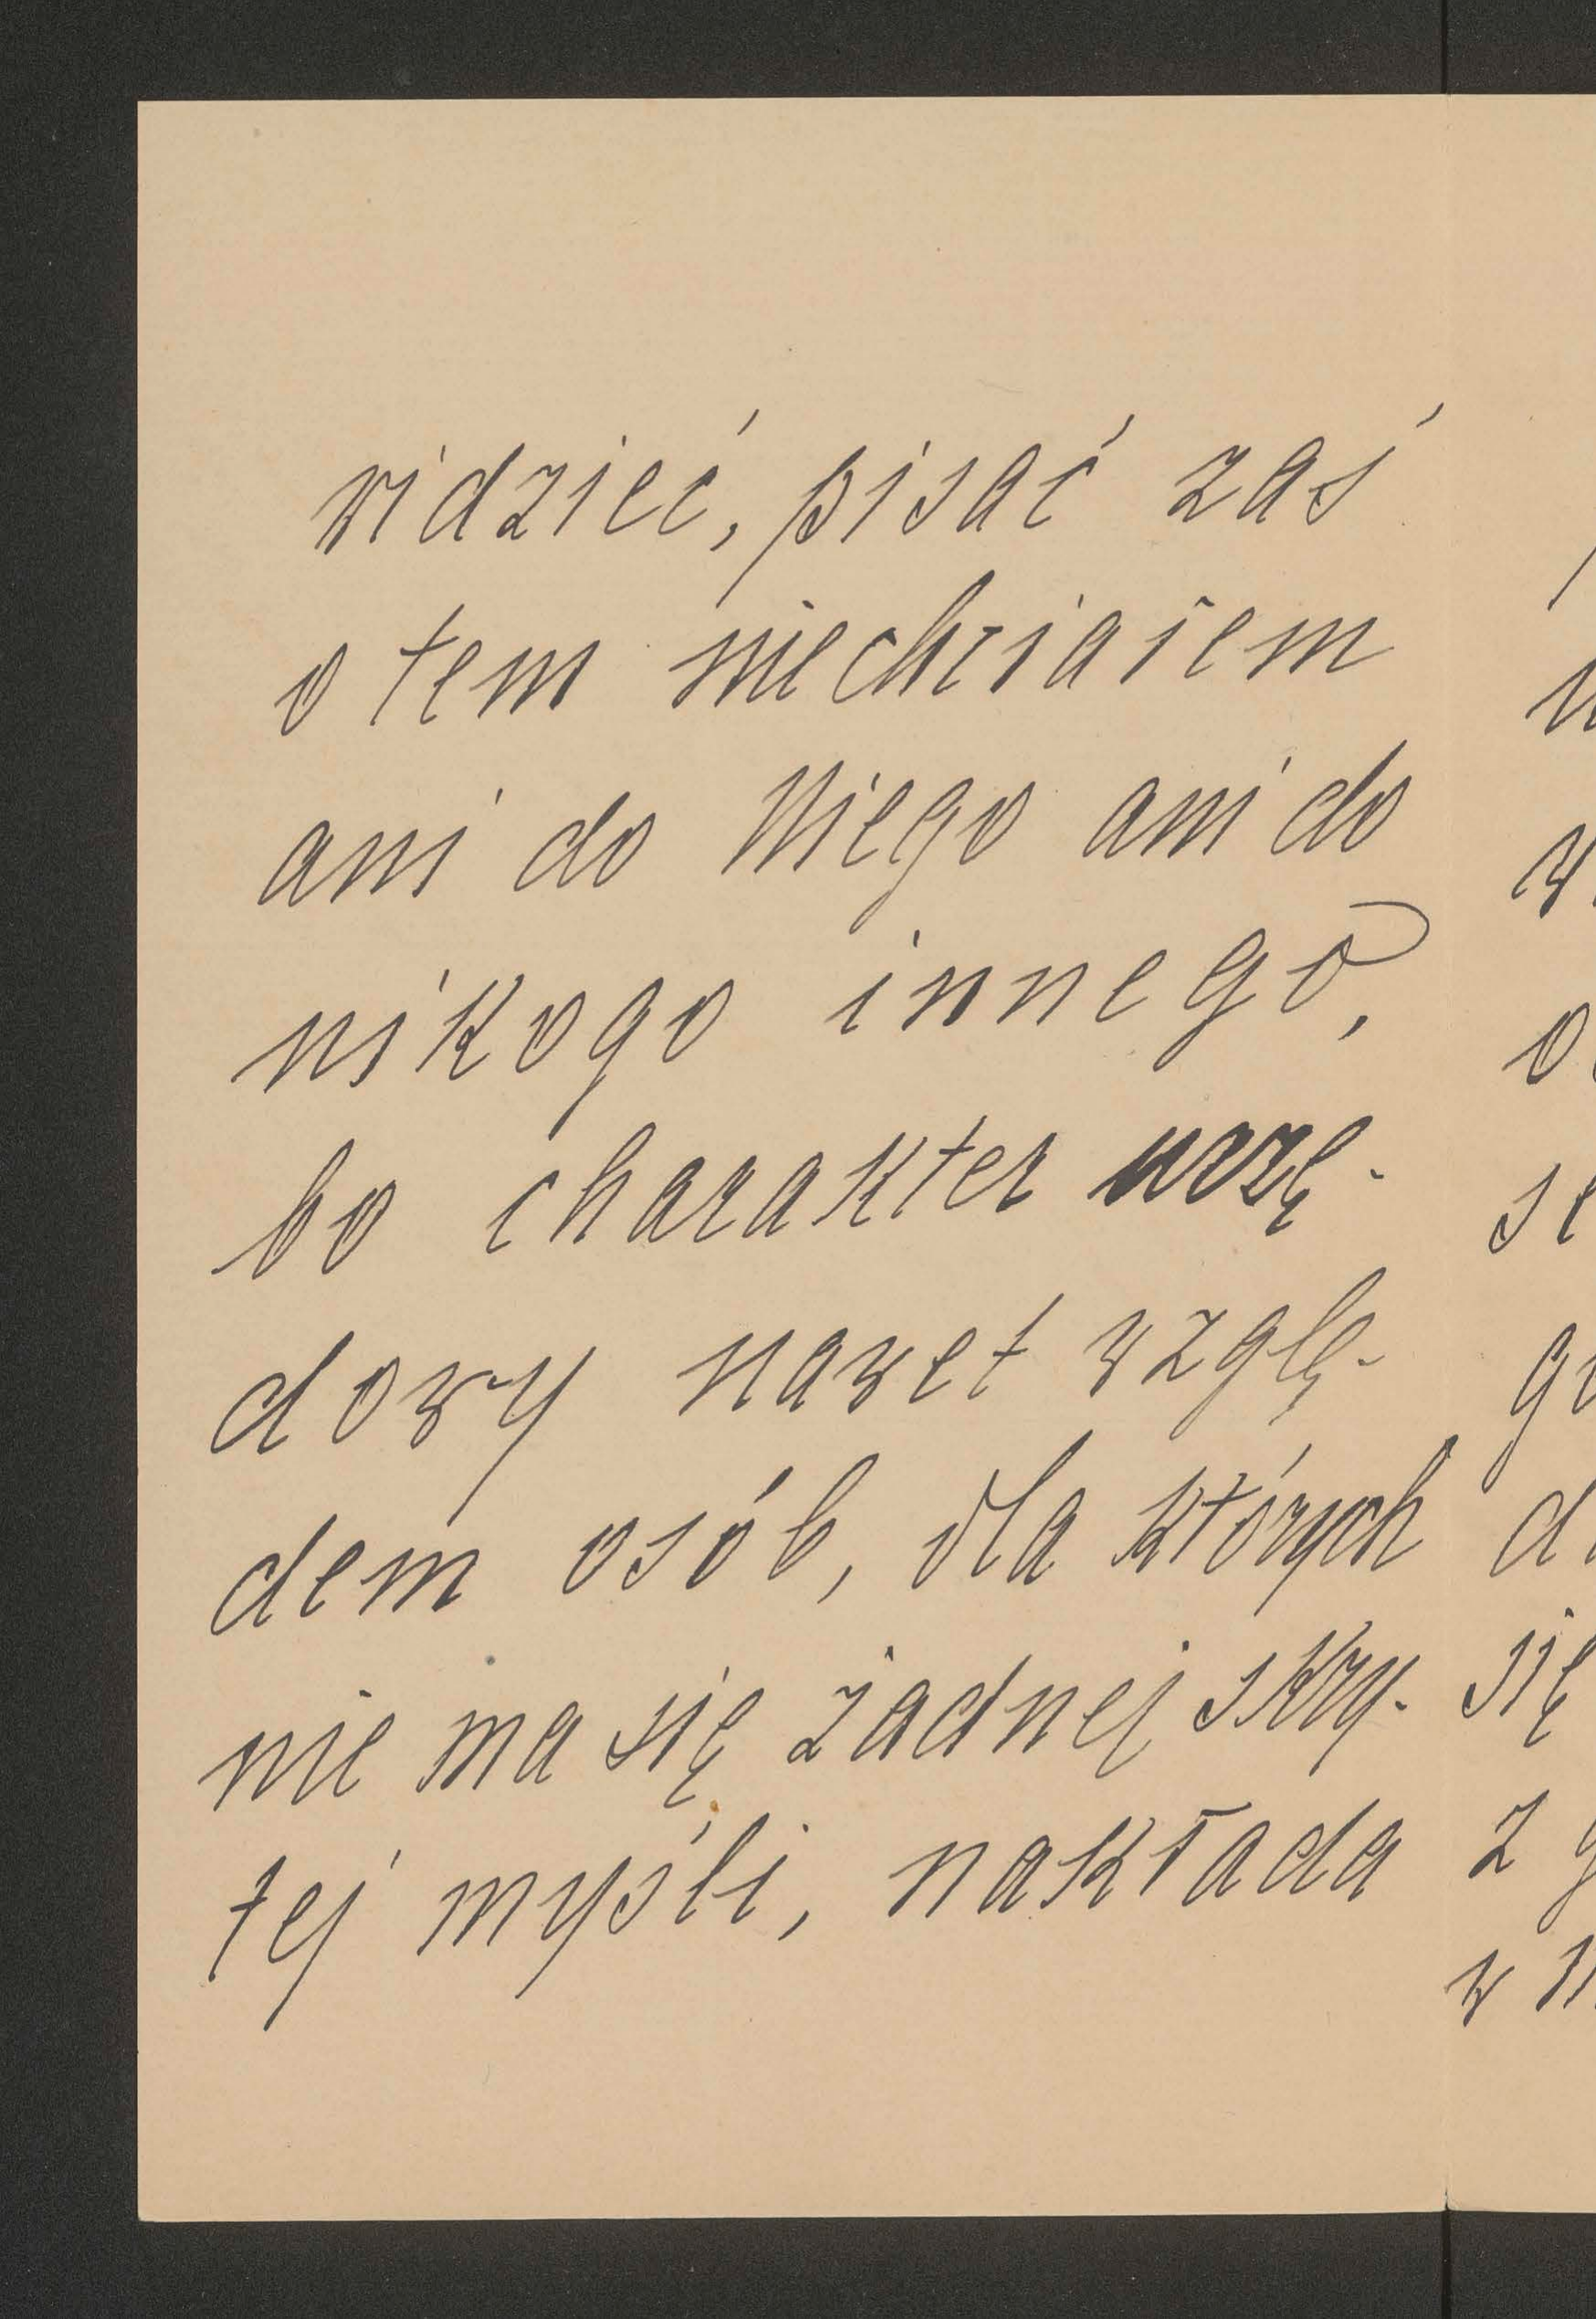 widzieć, pisać zaś
o tem niechciałem
ani do Niego ani do
nikogo innego,
bo charakter urzę-
dowy nawet wzglę-
dem osób, dla których
nie ma się żadnej skry-
tej myśli, nakłada
się
z
w